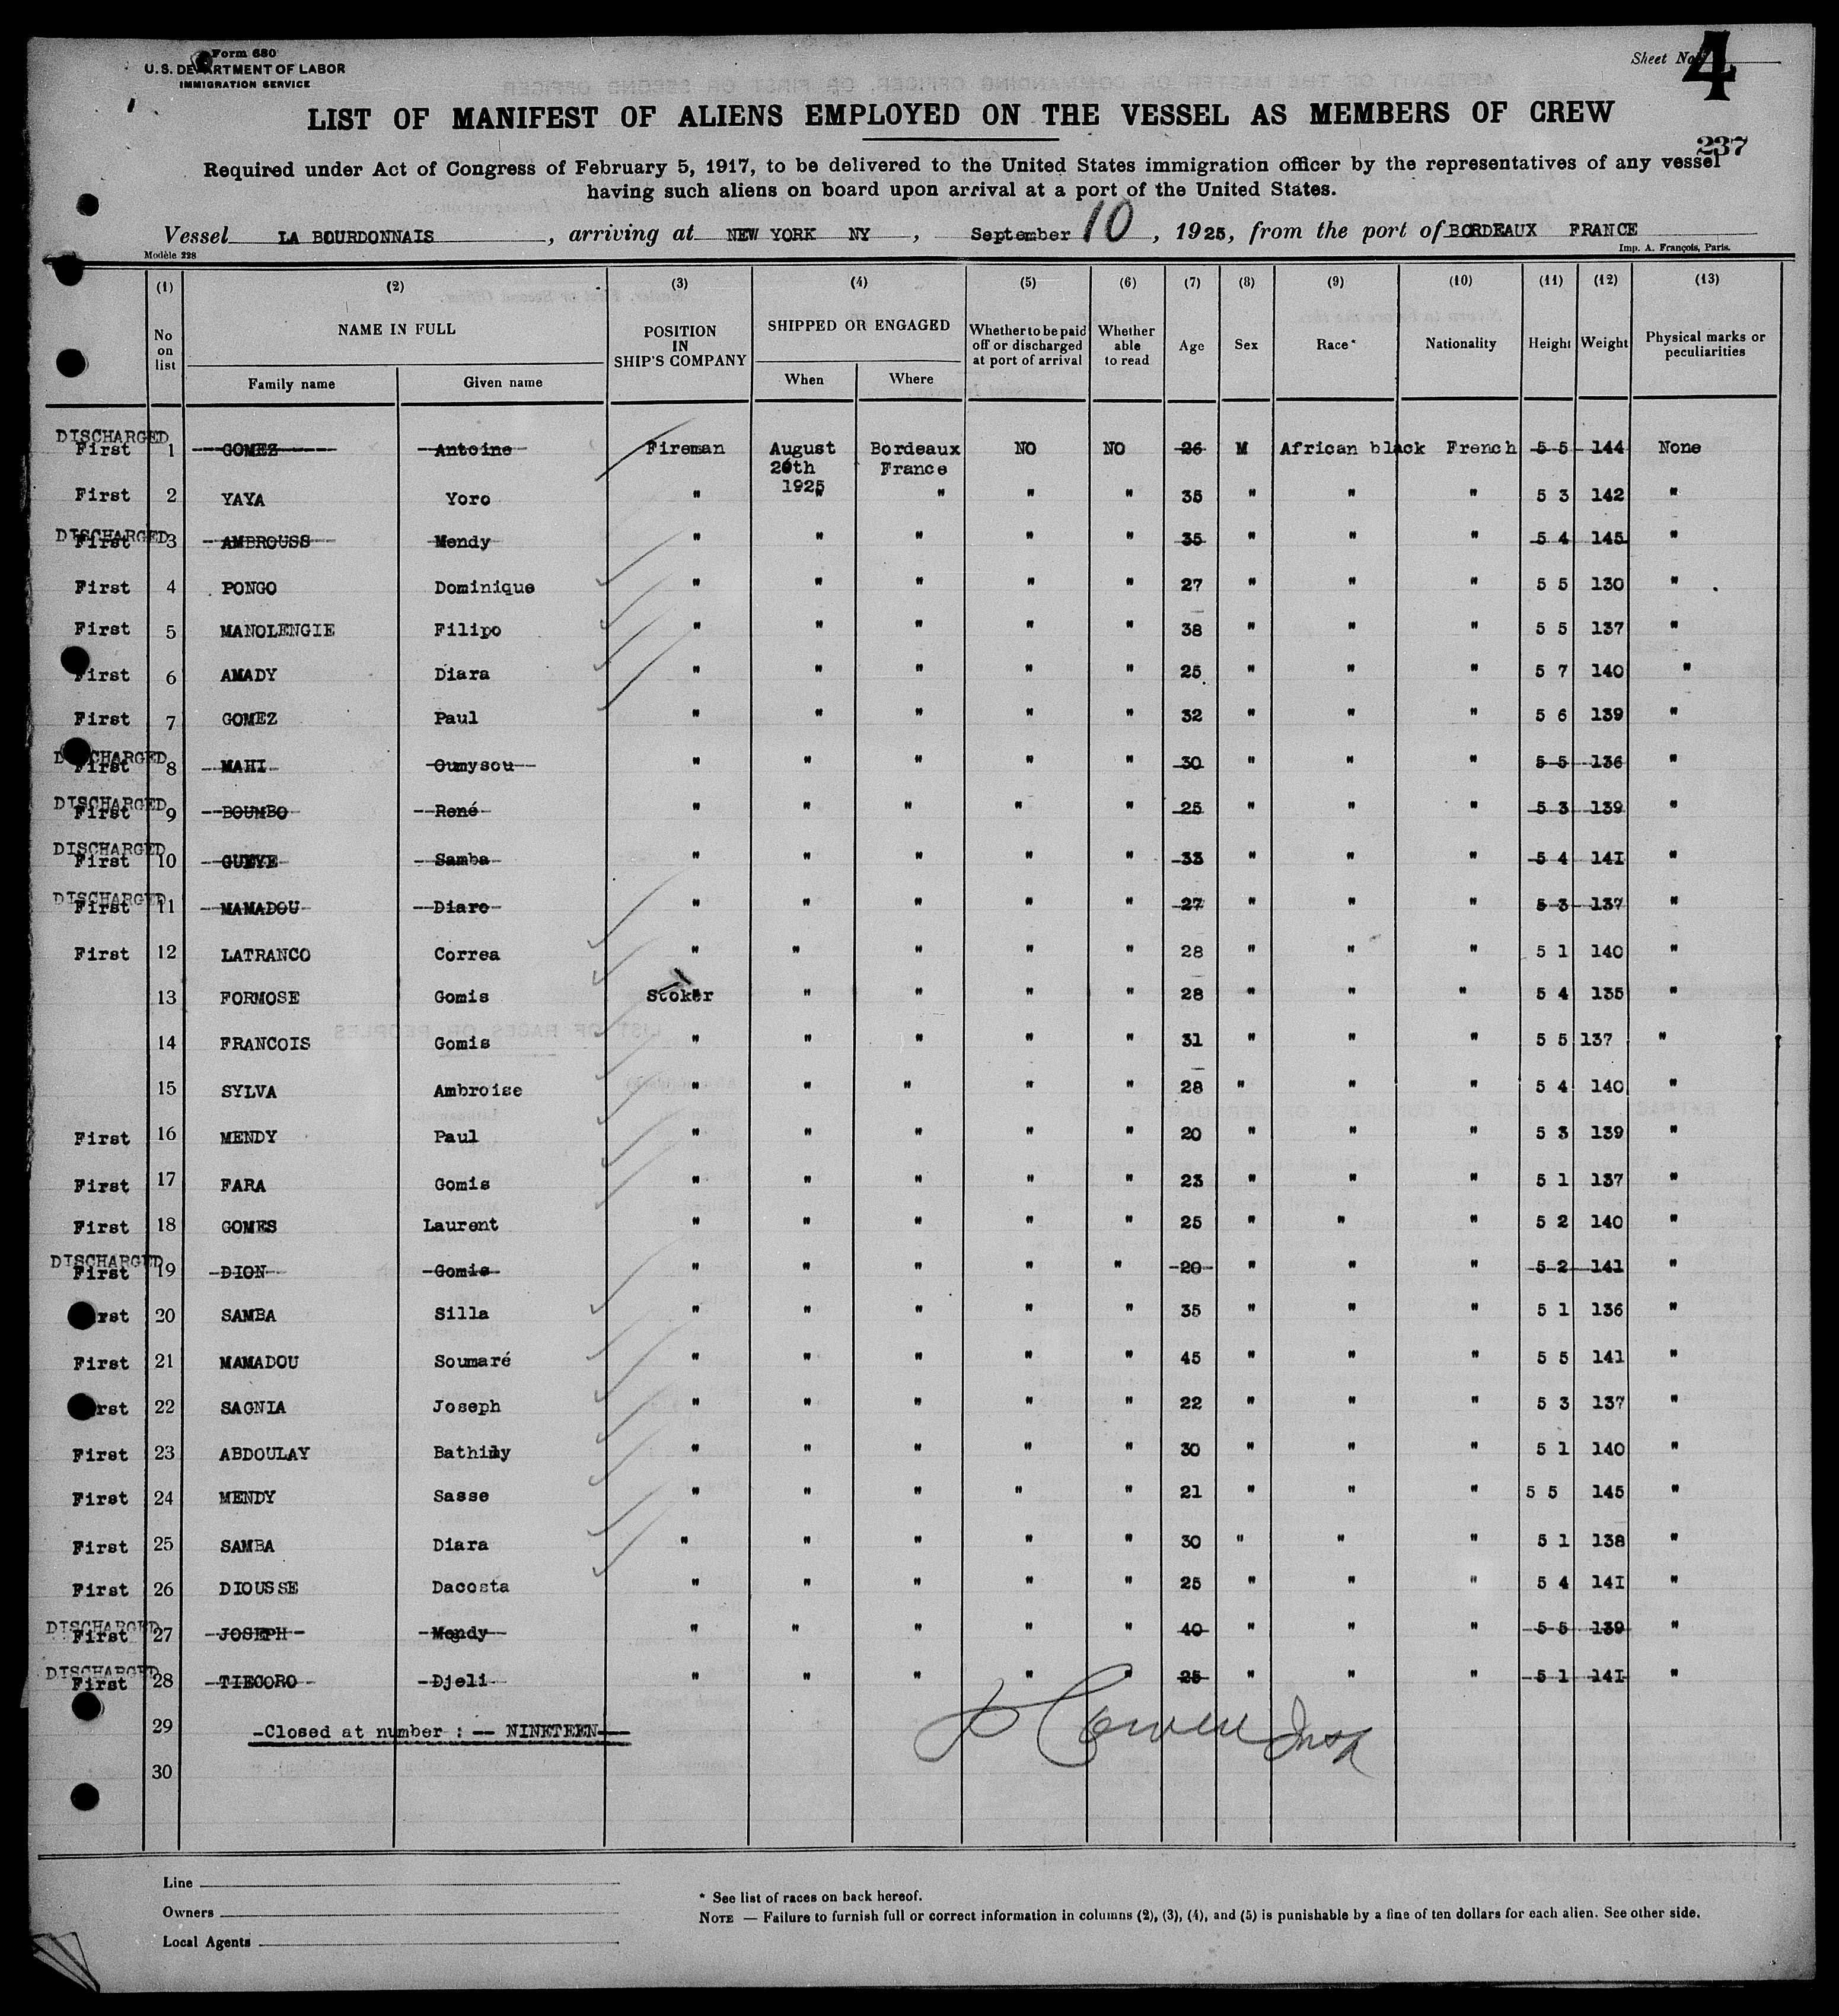 Form 680
U.S. DEPARTMENT OF LABOR
IMMIGRATION SERVICE
Sheet No. 4
LIST OF MANIFEST OF ALIENS EMPLOYED ON THE VESSEL AS MEMBERS OF CREW
237
Required under Act of Congress of February 5, 1917, to be delivered to the United States immigration officer by the representatives of any vessel
having such aliens on board upon arrival at a port of the United States.
Vessel LA BOURDONNAIS, arriving at NEW YORK NY, September 10, 1925, from the port of BORDEAUX FRANCE
Modèle 228
Imp. A. François, Paris.
(1) (2) (3) (4) (5) (6) (7) (8) (9) (10) (11) (12) (13)
No on list NAME IN FULL POSITION IN SHIP'S COMPANY SHIPPED OR ENGAGED Whether to be paid off or discharged at port of arrival Whether able to read Age Sex Race* Nationality Height Weight Physical marks or peculiarities
Family name Given name When Where
DISCHARGED
First 1 GOMEZ Antoine Fireman August Bordeaux NO NO 26 M African black French 5 5 144 None
20th France
1925
First 2 YAYA Yoro " " " " " 35 " " " 5 3 142 "
DISCHARGED
First 3 AMBROUSS Mendy " " " " " 35 " " " 5 4 145 "
First 4 PONGO Dominique " " " " " 27 " " " 5 5 130 "
First 5 MANOLENGIE Filipo " " " " " 38 " " " 5 5 137 "
First 6 AMADY Diara " " " " " 25 " " " 5 7 140 "
First 7 GOMEZ Paul " " " " " 32 " " " 5 6 139 "
DISCHARGED
First 8 MAHI Oumysou " " " " " 30 " " " 5 5 136 "
DISCHARGED
First 9 BOUMBO René " " " " " 25 " " " 5 3 139 "
DISCHARGED
First 10 GUEYE Samba " " " " " 33 " " " 5 4 14I "
DISCHARGED
First 11 MAMADOU Diaro " " " " " 27 " " " 5 3 137 "
First 12 LATRANCO Correa " " " " " 28 " " " 5 1 140 "
13 FORMOSE Gomis Stoker " " " " 28 " " " 5 4 135 "
14 FRANCOIS Gomis " " " " " 31 " " " 5 5 137 "
15 SYLVA Ambroise " " " " " 28 " " " 5 4 140 "
First 16 MENDY Paul " " " " " 20 " " " 5 3 139 "
First 17 FARA Gomis " " " " " 23 " " " 5 1 137 "
First 18 GOMES Laurent " " " " " 25 " " " 5 2 140 "
DISCHARGED
First 19 DION Gomis " " " " " 20 " " " 5 2 141 "
First 20 SAMBA Silla " " " " " 35 " " " 5 1 136 "
First 21 MAMADOU Soumaré " " " " " 45 " " " 5 5 141 "
First 22 SAGNIA Joseph " " " " " 22 " " " 5 3 137 "
First 23 ABDOULAY Bathily " " " " " 30 " " " 5 1 140 "
First 24 MENDY Sasse " " " " " 21 " " " 5 5 145 "
First 25 SAMBA Diara " " " " " 30 " " " 5 1 138 "
First 26 DIOUSSE Dacosta " " " " " 25 " " " 5 4 14I "
DISCHARGED
First 27 JOSEPH Mendy " " " " " 40 " " " 5 5 139 "
DISCHARGED
First 28 TIECORO Djeli " " " " " 25 " " " 5 1 14I "
29 -Closed at number : -- NINETEEN--
30
Line
Owners
Local Agents
* See list of races on back hereof.
NOTE — Failure to furnish full or correct information in columns (2), (3), (4), and (5) is punishable by a fine of ten dollars for each alien. See other side.